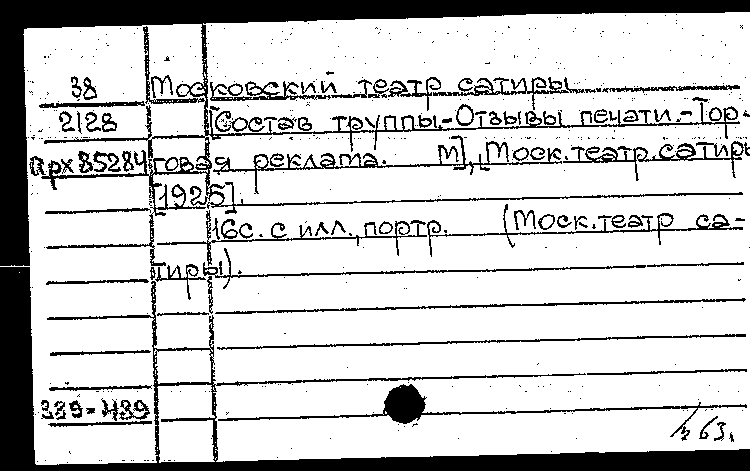 38 Московский театр сатиры
2128 [Состав труппы.-Отзывы печати.-Тор-
арх 85284 говая реклама. М], [Моск.театр.сатиры
[1925].
16с. с илл., портр. (Моск.театр са-
тиры).
339-489
63.